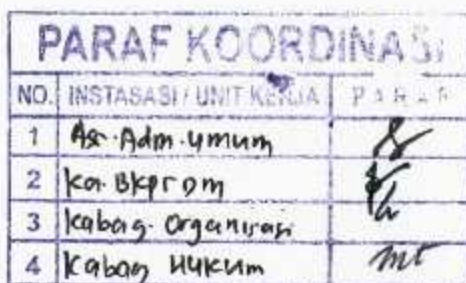 PARAF KOORDINASI
NO. INSTASASI / UNIT KERJA PARAF
1 Asr. Adm. Umum
2 Ka. BKPrDM
3 Kabag. Organisasi
4 Kabag Hukum